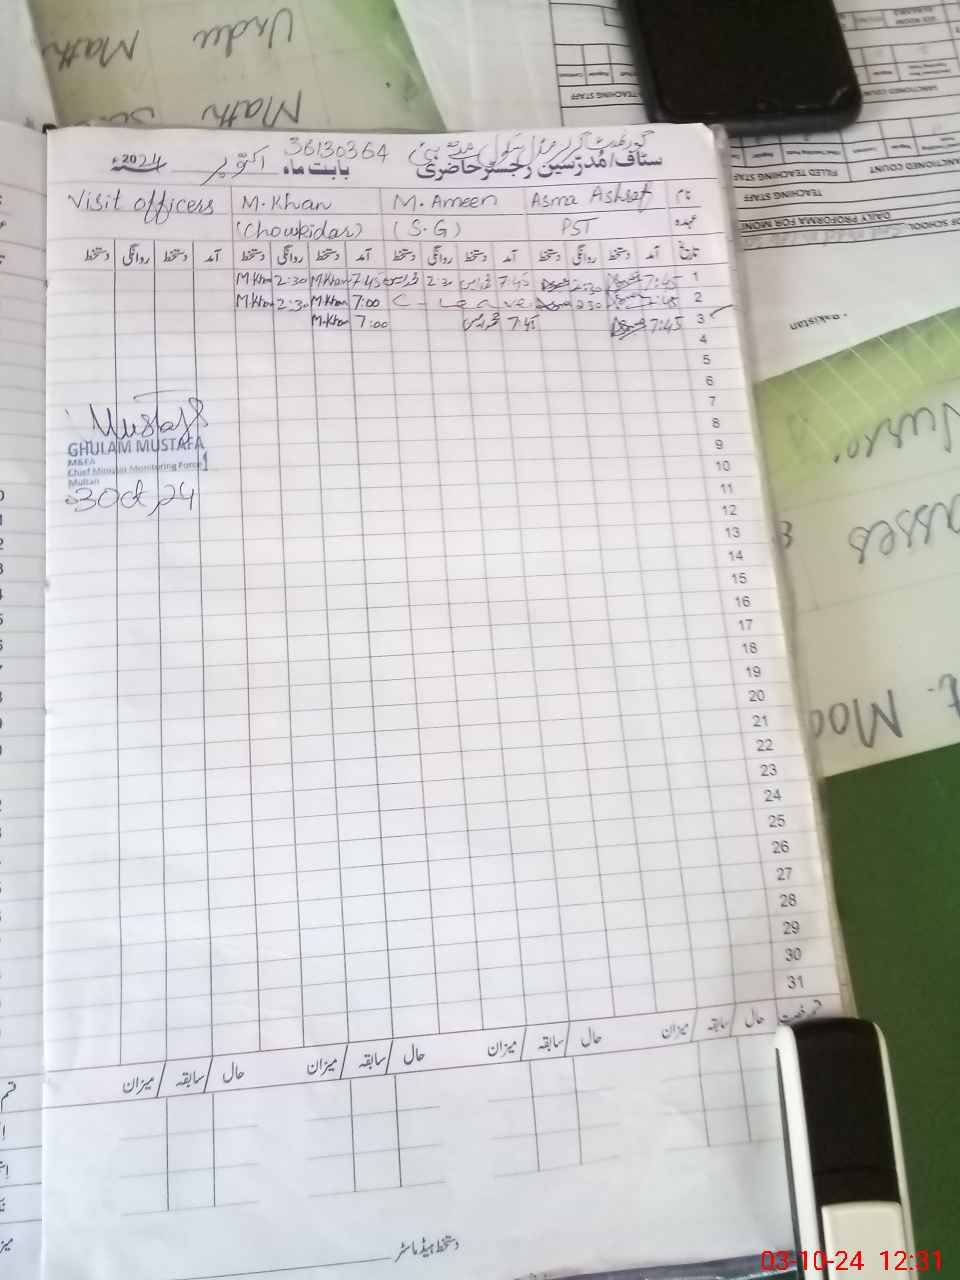 Urdu
Math
Math
36130364
گورنمنٹ گرلز
سٹاف/مدرسین رجسٹر حاضری
بابت ماہ اکتوبر 2024ء
نام Asma Ashraf M. Ameen M.Khan Visit officers
عہدہ PST (S.G) (Chowkidar)
تاریخ آمد دستخط روانگی دستخط آمد دستخط روانگی دستخط آمد دستخط روانگی دستخط آمد دستخط روانگی دستخط
1 7:45 2:30 7:45 2:30 7:45 M.Khan 2:30 M.Khan
2 7:45 2:30 C - Leave 7:00 M.Khan 2:30 M.Khan
3 7:45 7:45 7:00 M.Khan
4
5
6
7
8
9
10
11
12
13
14
15
16
17
18
19
20
21
22
23
24
25
26
27
28
29
30
31
Mustafa
GHULAM MUSTAFA
M&EA
Chief Minister Monitoring Force
Multan
3 Oct, 24
حال سابقہ میزان حال سابقہ میزان حال سابقہ میزان حال سابقہ میزان
دستخط ہیڈ ماسٹر
TEACHING STAFF
FILLED TEACHING STAFF
SANCTIONED COUNT
TEACHING STAFF
DAILY PROFORMA FOR MONI
OF SCHOOL
Pakistan
03-10-24 12:31